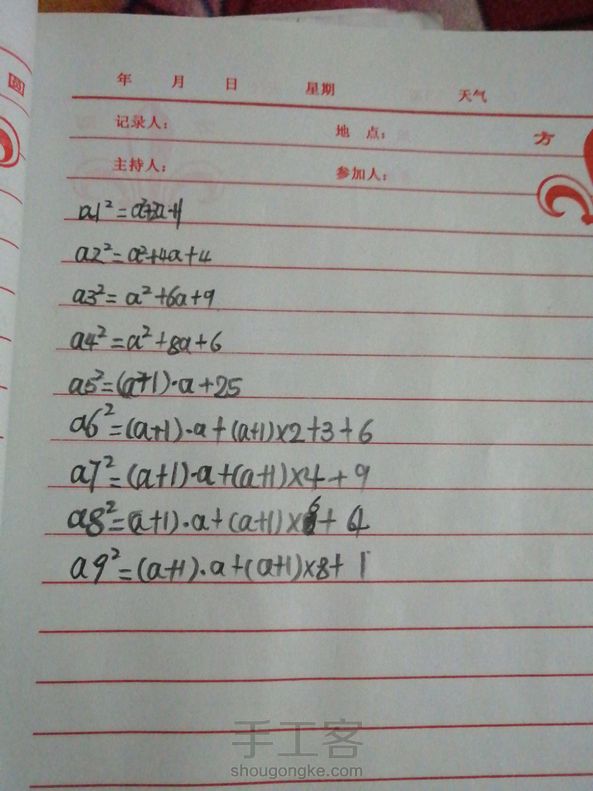 圆
年 月 日 星期 天气
记录人: 地 点: 方
主持人: 参加人:
a1²=a²+2a+1
a2²=a²+4a+4
a3²=a²+6a+9
a4²=a²+8a+6
a5²=(a+1)·a+25
a6²=(a+1)·a+(a+1)×2+3+6
a7²=(a+1)·a+(a+1)×4+9
a8²=(a+1)·a+(a+1)×6+4
a9²=(a+1)·a+(a+1)×8+1
手工客
shougongke.com